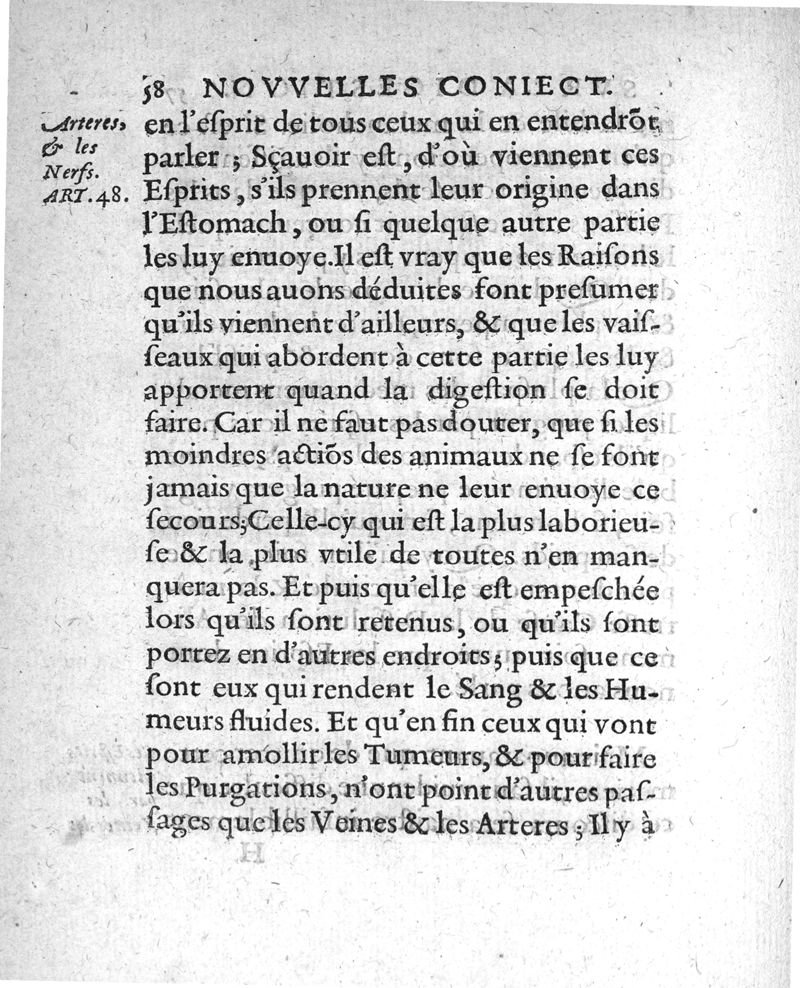 58 NOVVELLES CONIECT.
Arteres,
& les
Nerfs.
ART. 48.
en l'eſprit de tous ceux qui en entendrõt
parler ; Sçauoir eſt, d'où viennent ces
Eſprits, s'ils prennent leur origine dans
l'Eſtomach, ou ſi quelque autre partie
les luy enuoye. Il eſt vray que les Raiſons
que nous auons déduites font preſumer
qu'ils viennent d'ailleurs, & que les vaiſ-
ſeaux qui abordent à cette partie les luy
apportent quand la digeſtion ſe doit
faire. Car il ne faut pas douter, que ſi les
moindres actiõs des animaux ne ſe font
jamais que la nature ne leur enuoye ce
ſecours; Celle-cy qui eſt la plus laborieu-
ſe & la plus vtile de toutes n'en man-
quera pas. Et puis qu'elle eſt empeſchée
lors qu'ils ſont retenus, ou qu'ils ſont
portez en d'autres endroits; puis que ce
ſont eux qui rendent le Sang & les Hu-
meurs fluides. Et qu'en fin ceux qui vont
pour amollir les Tumeurs, & pour faire
les Purgations, n'ont point d'autres paſ-
ſages que les Veines & les Arteres ; Il y à